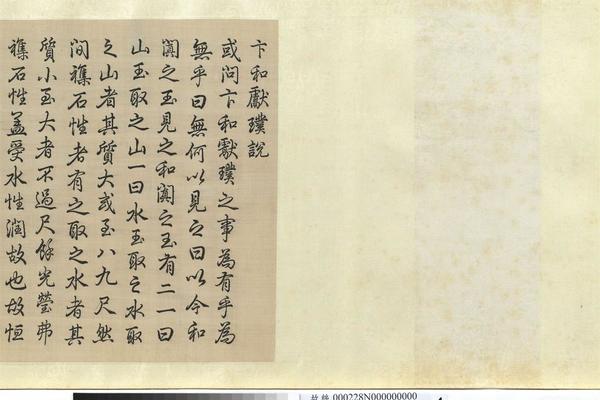 卞和獻璞說
或問卞和獻璞之事為有乎為
無乎曰無何以見之曰以今和
闐之玉見之和闐之玉有二一曰
山玉取之山一曰水玉取之水取
之山者其質大或至八九尺然
間襍石性者有之取之水者其
質小玉大者不過尺餘光瑩弗
襍石性蓋受水性潤故也故恒
故絲000228N000000000